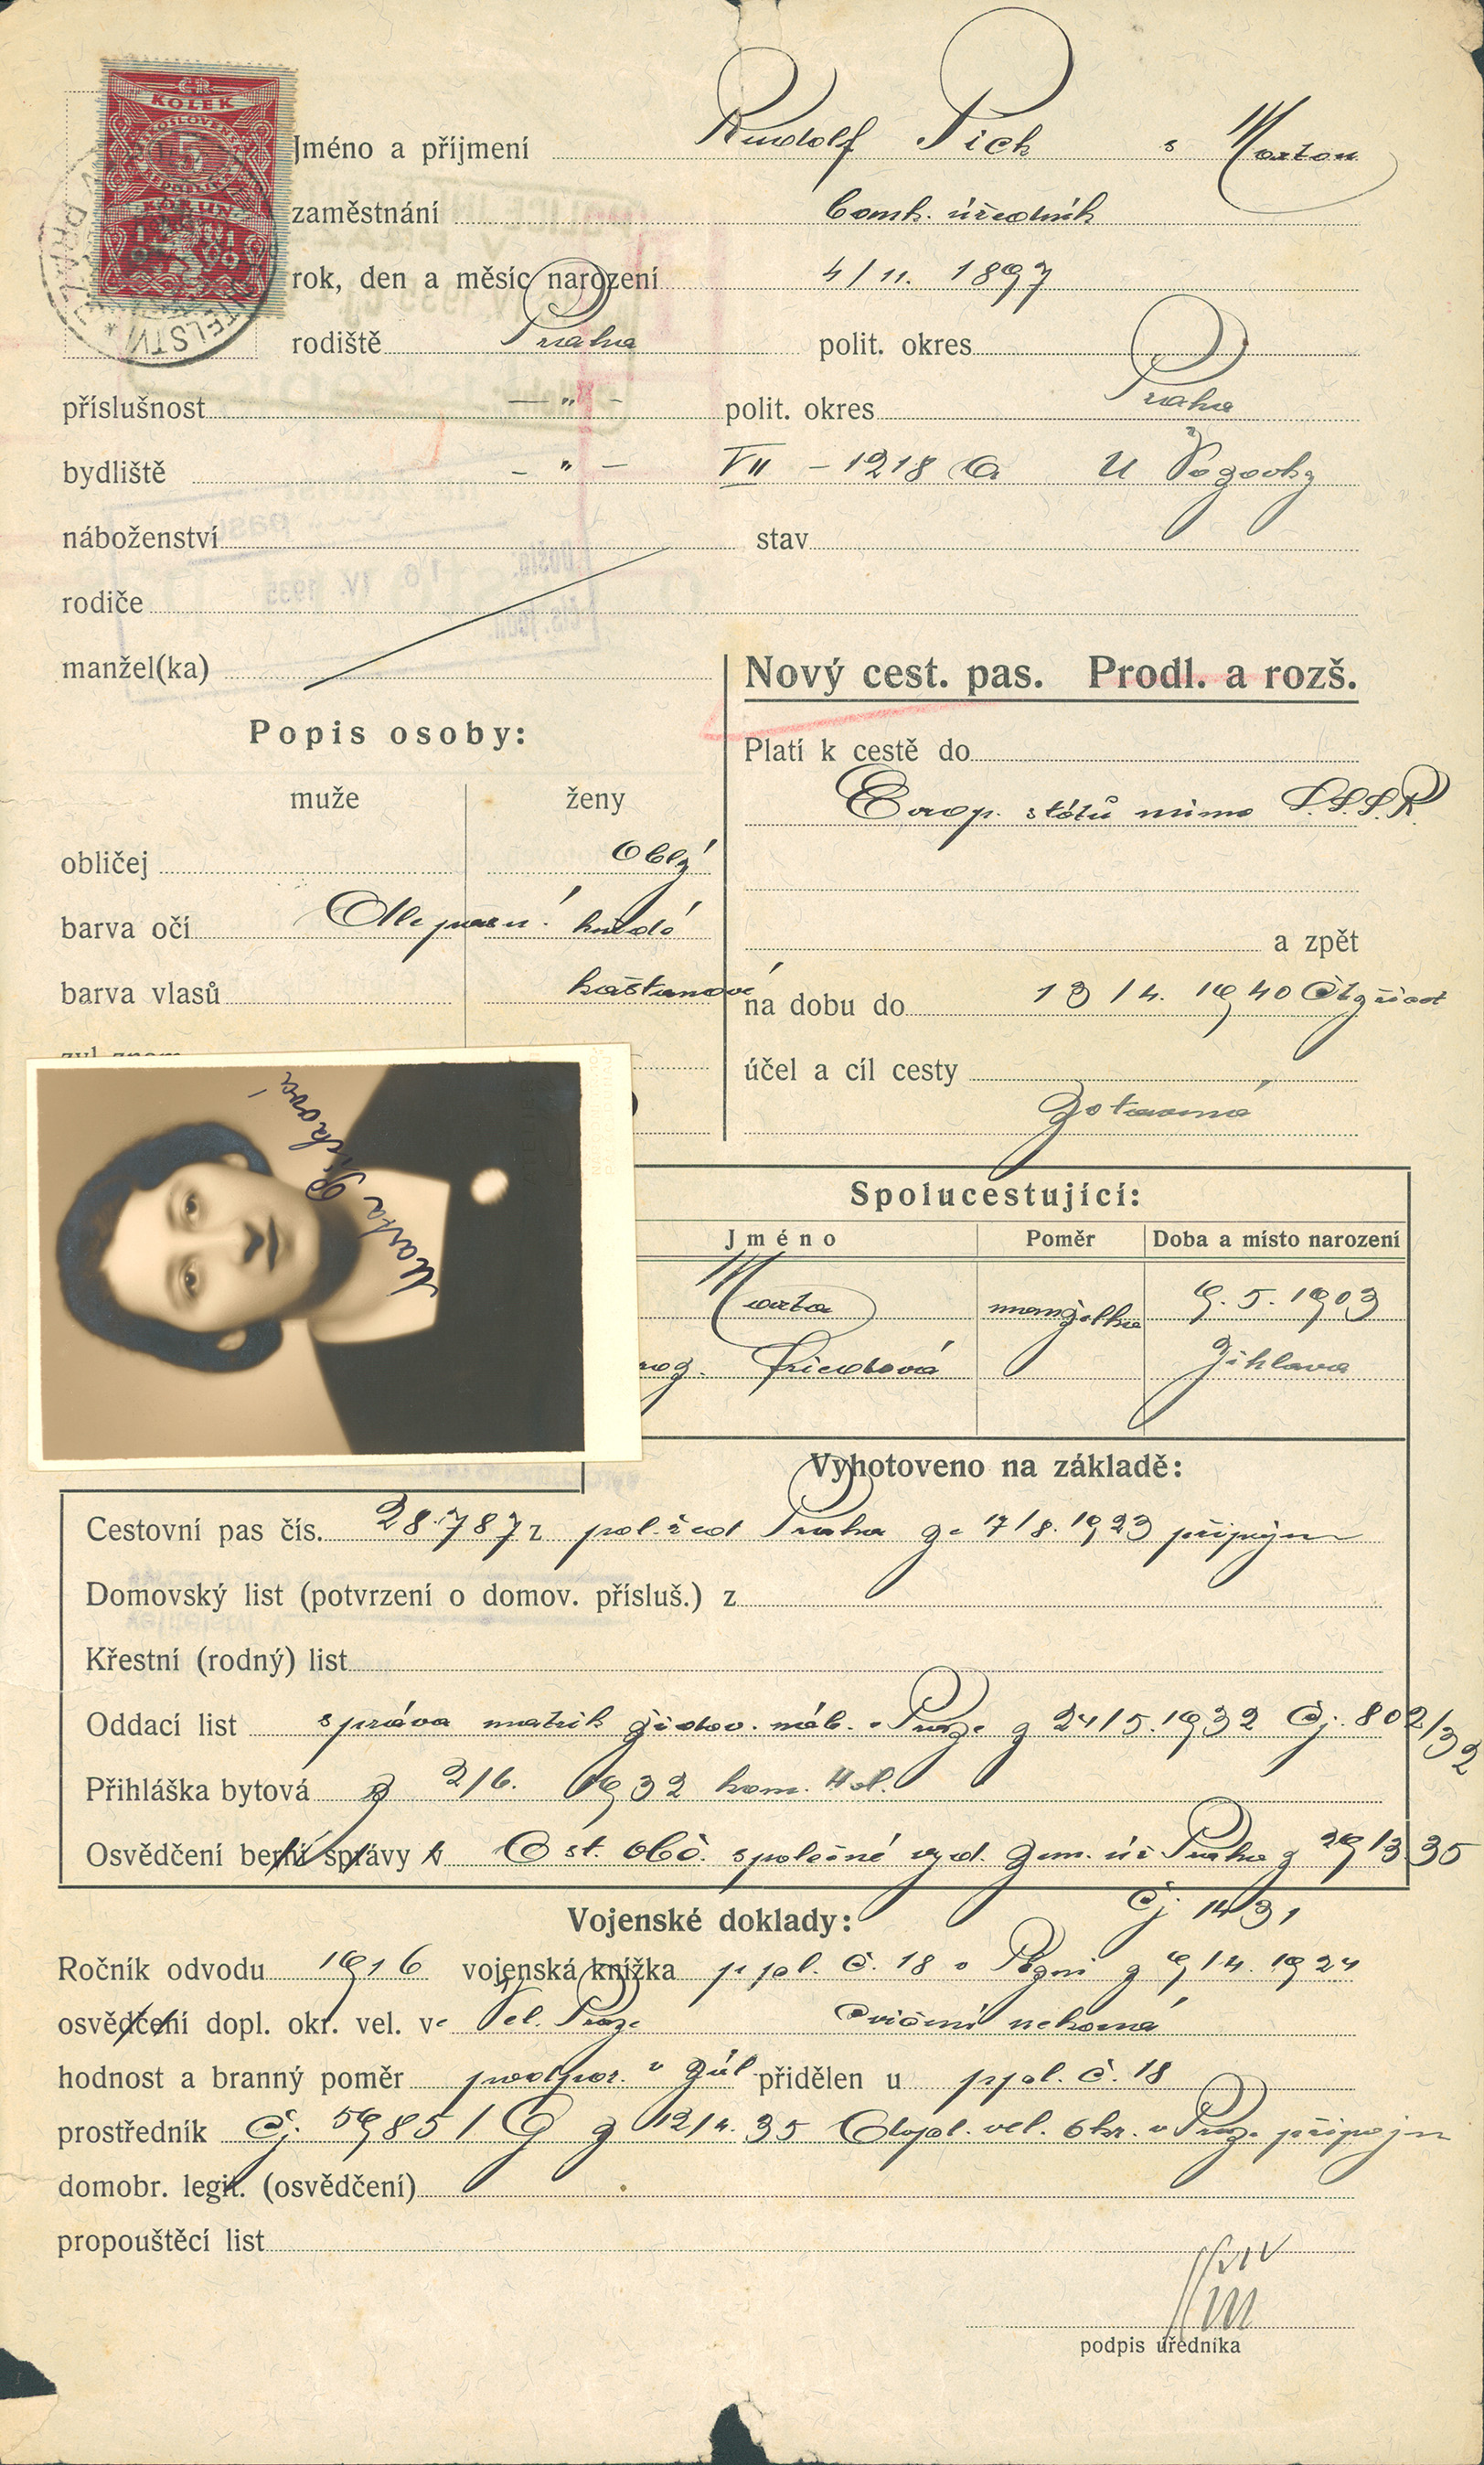 KOLEK
5
KORUN
Jméno a příjmení Rudolf Pick s Martou
zaměstnání úředník
rok, den a měsíc narození 4/11. 1897
rodiště Praha polit. okres
příslušnost — " — polit. okres Praha
bydliště — " — VII – 1218 U
náboženství stav
rodiče
manžel(ka)
Nový cest. pas. Prodl. a rozš.
Popis osoby:
Platí k cestě do
muže ženy
Evrop. států mimo S.S.S.R.
obličej oblý
barva očí hnědé
a zpět
barva vlasů kaštanové
na dobu do 13/4. 1940
účel a cíl cesty
zotavená
Marta Picková
Spolucestující:
Jméno Poměr Doba a místo narození
Marta manželka 9. 5. 1903
roz. Friedová Jihlava
Vyhotoveno na základě:
Cestovní pas čís. 28.787 z pol. řed Praha ze 17/8. 1923 připojen
Domovský list (potvrzení o domov. přísluš.) z
Křestní (rodný) list
Oddací list správa matrik židov. náb. v Praze z 24/5. 1932 čj. 802/32
Přihláška bytová z 2/6. 1932 kom.
Osvědčení berní správy v O st. obč. společné vyd. zem. úř. Praha z 29/3 35
čj 1431
Vojenské doklady:
Ročník odvodu 1916 vojenská knížka p. pl. č. 18 v z 9/4. 1924
osvědčení dopl. okr. vel. ve Vel. Praze cvičení nekoná
hodnost a branný poměr podpor. v zál přidělen u p. pl. č. 18
prostředník čj. 59851 z 12/4. 35 dopl. vel. okr. v Praze připojen
domobr. legit. (osvědčení)
propouštěcí list
podpis úředníka